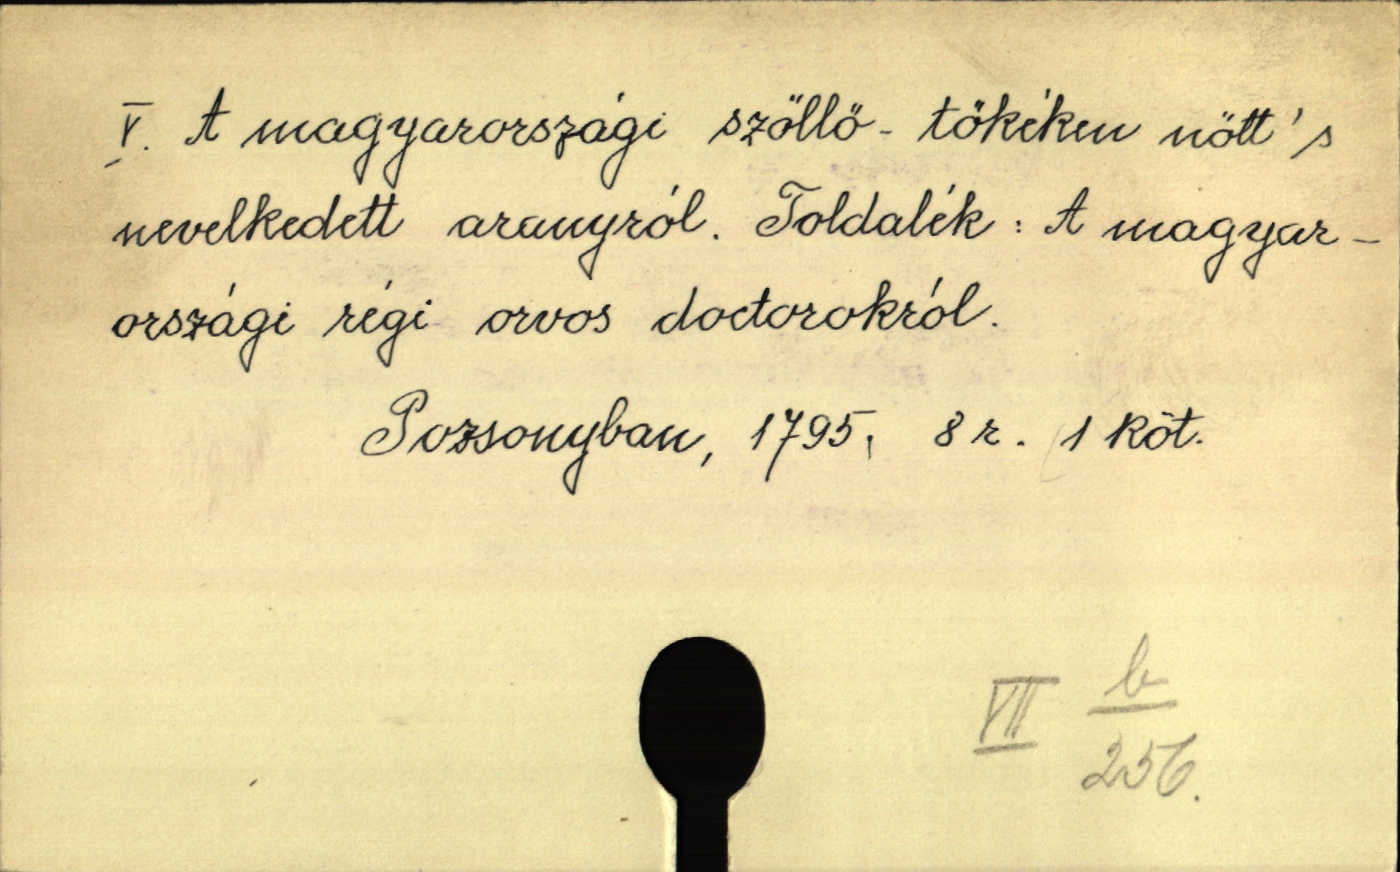 V. A magyarországi szöllö-tökéken nött 's
nevelkedett aranyról. Toldalék: A magyar-
országi régi orvos doctorokról.
Pozsonyban, 1795, 8 r. 1 köt.
VII b
256.